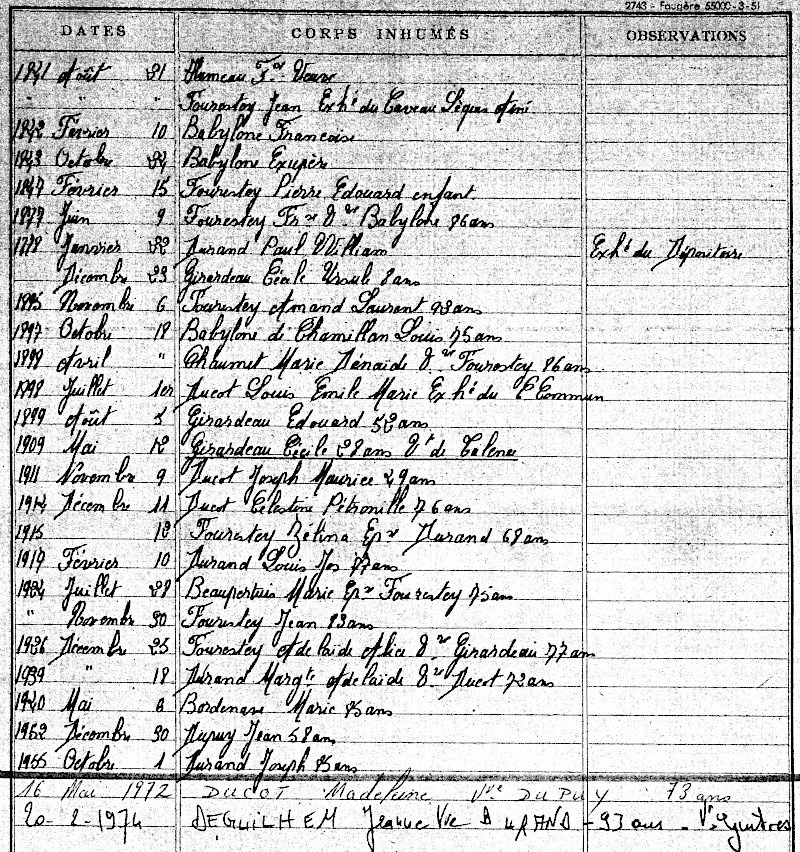 2743 - Fougère 55000-3-51
DATES CORPS INHUMÉS OBSERVATIONS
1841 Août 21 Hameau Fse Veuve
" " " Fourestey Jean Exhé du Caveau Légras Aîné
1842 Février 10 Babylone Francoise
1843 Octobre 24 Babylone Exupère
1847 Février 15 Fourestey Pierre Edouard enfant
1877 Juin 9 Fourestey Fse Vve Babylone 86 ans
1778 Janvier 22 Durand Paul William Exhé du Dépositoire
Décembre 23 Girardeau Cécile Ursule 8 ans
1895 Novembre 6 Fourestey Amand Laurent 93 ans
1897 Octobre 18 Babylone de Chamillan Louis 75 ans
1899 Avril " Chaumet Marie Dénaide Vve Fourestey 86 ans
1898 Juillet 1er Ducot Louis Emile Marie Exhé du C Commun
1899 Août 5 Girardeau Edouard 52 ans
1909 Mai 12 Girardeau Cécile 28 ans Vt de Talence
1911 Novembre 9 Ducot Joseph Maurice 29 ans
1914 Décembre 11 Ducot Célestine Pétronille 76 ans
1915 12 Fourestey Zélina Epse Durand 68 ans
1917 Février 10 Durand Louis Jos 77 ans
1924 Juillet 28 Beaupertuis Marie Epse Fourestey 75 ans
" Novembre 30 Fourestey Jean 83 ans
1926 Décembre 25 Fourestey Adelaide Alice Vve Girardeau 77 ans
1939 " 18 Durand Margte Adelaide Vve Ducot 72 ans
1940 Mai 8 Bordenave Marie 85 ans
1952 Décembre 30 Dupuy Jean 58 ans
1955 Octobre 1 Durand Joseph 85 ans
16 Mai 1972 DUCOT Madeleine Vve DUPUY 73 ans
20-2-1974 DEGUILHEM Jeanne Vve DURAND - 93 ans - Vt Guitres